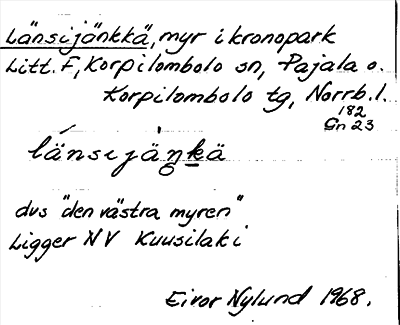 Länsijänkkä, myr i kronopark
Litt. F, Korpilombolo sn, Pajala o.
Korpilombolo tg, Norrb. l.
182
Gn 23
länsijäŋkä
dvs "den västra myren"
Ligger NV Kuusilaki
Eivor Nylund 1968.